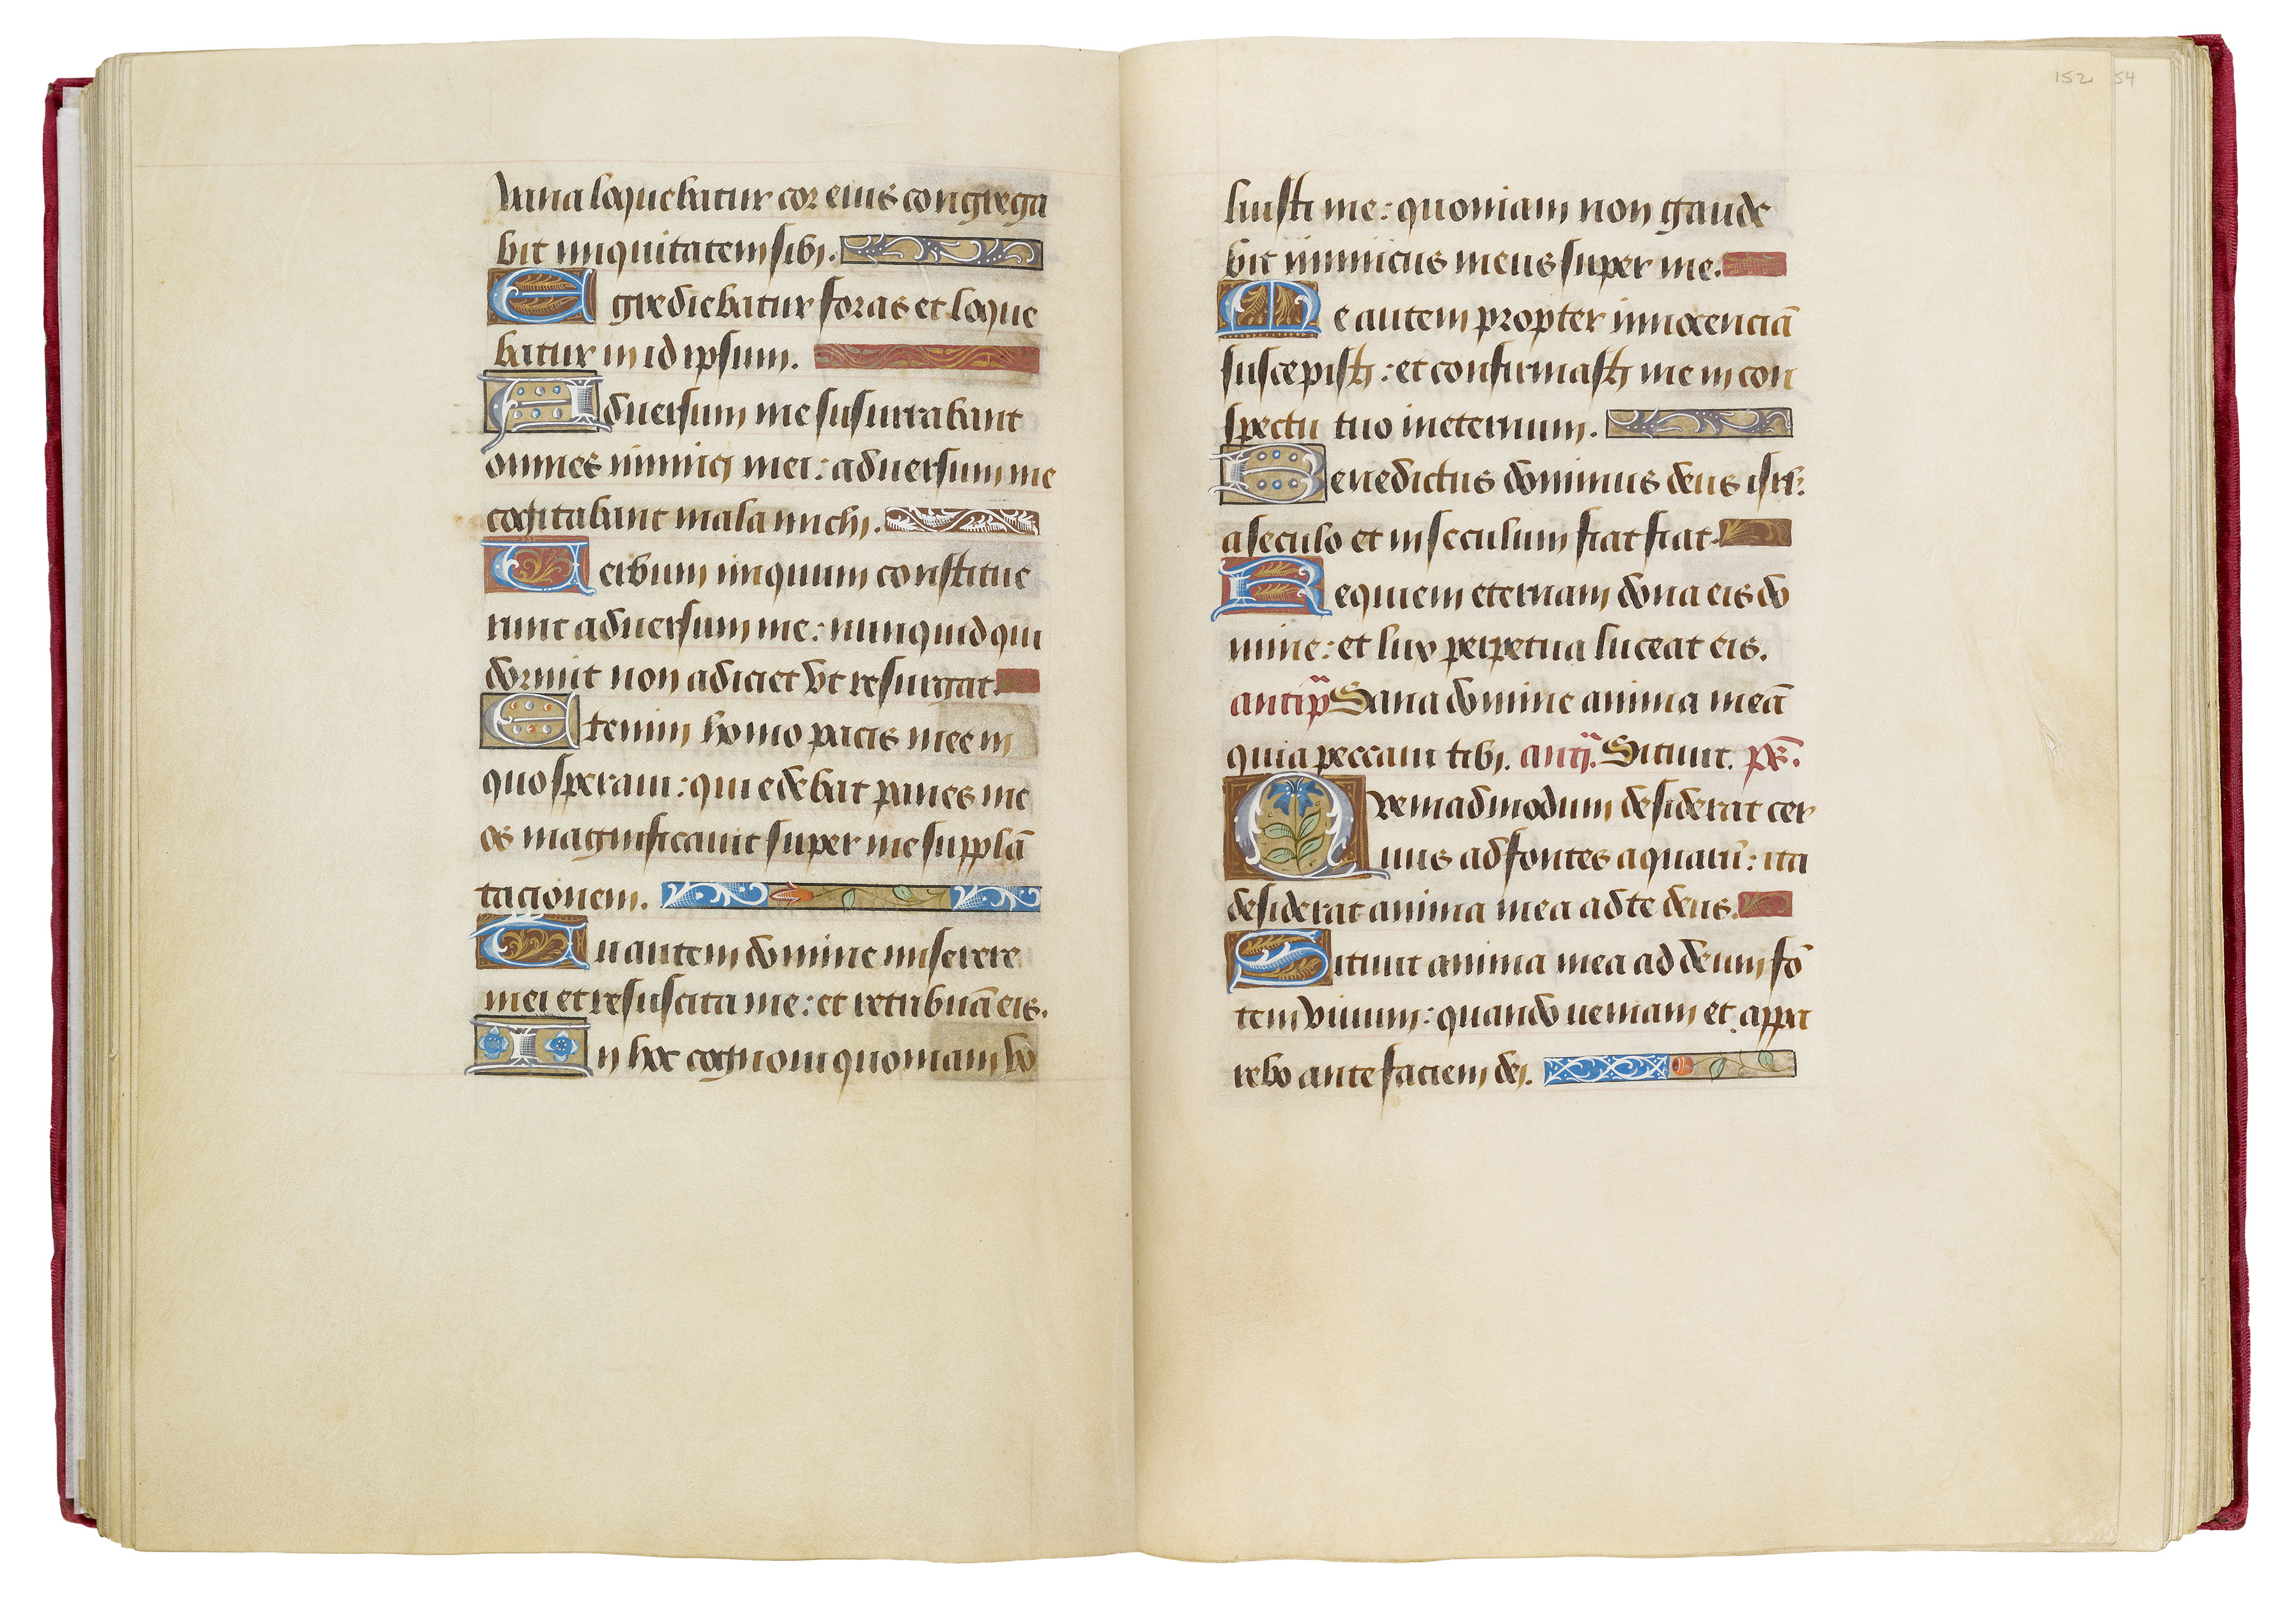 vana loquebatur cor eius congrega
bit iniquitatem sibi.
Egrediebatur foras et loque
batur in id ipsum.
Aduersum me susurrabant
omnes inimici mei: aduersum me
cogitabant mala michi.
Verbum iniquum constitue
runt aduersum me: nunquid qui
dormit non adiciet vt resurgat.
Etenim homo pacis mee in
quo speraui: qui edebat panes me
os magnificauit super me supplā
tacionem.
Tu autem domine miserere
mei et resuscita me: et retribuā eis.
In hoc cognoui quoniam vo
152 54
luisti me: quoniam non gaude
bit inimicus meus super me.
Me autem propter innocenciā
suscepisti: et confirmasti me in con
spectu tuo in eternum.
Benedictus dominus deus isrl:
a seculo et in seculum fiat fiat.
Requiem eternam dona eis do
mine: et lux perpetua luceat eis.
antiph Sana domine anima meā
quia peccaui tibi. anti. Sitiuit. ps.
Quemadmodum desiderat cer
uus ad fontes aquarū: ita
desiderat anima mea ad te deus.
Sitiuit anima mea ad deum fō
tem viuum: quando ueniam et appa
rebo ante faciem dei.